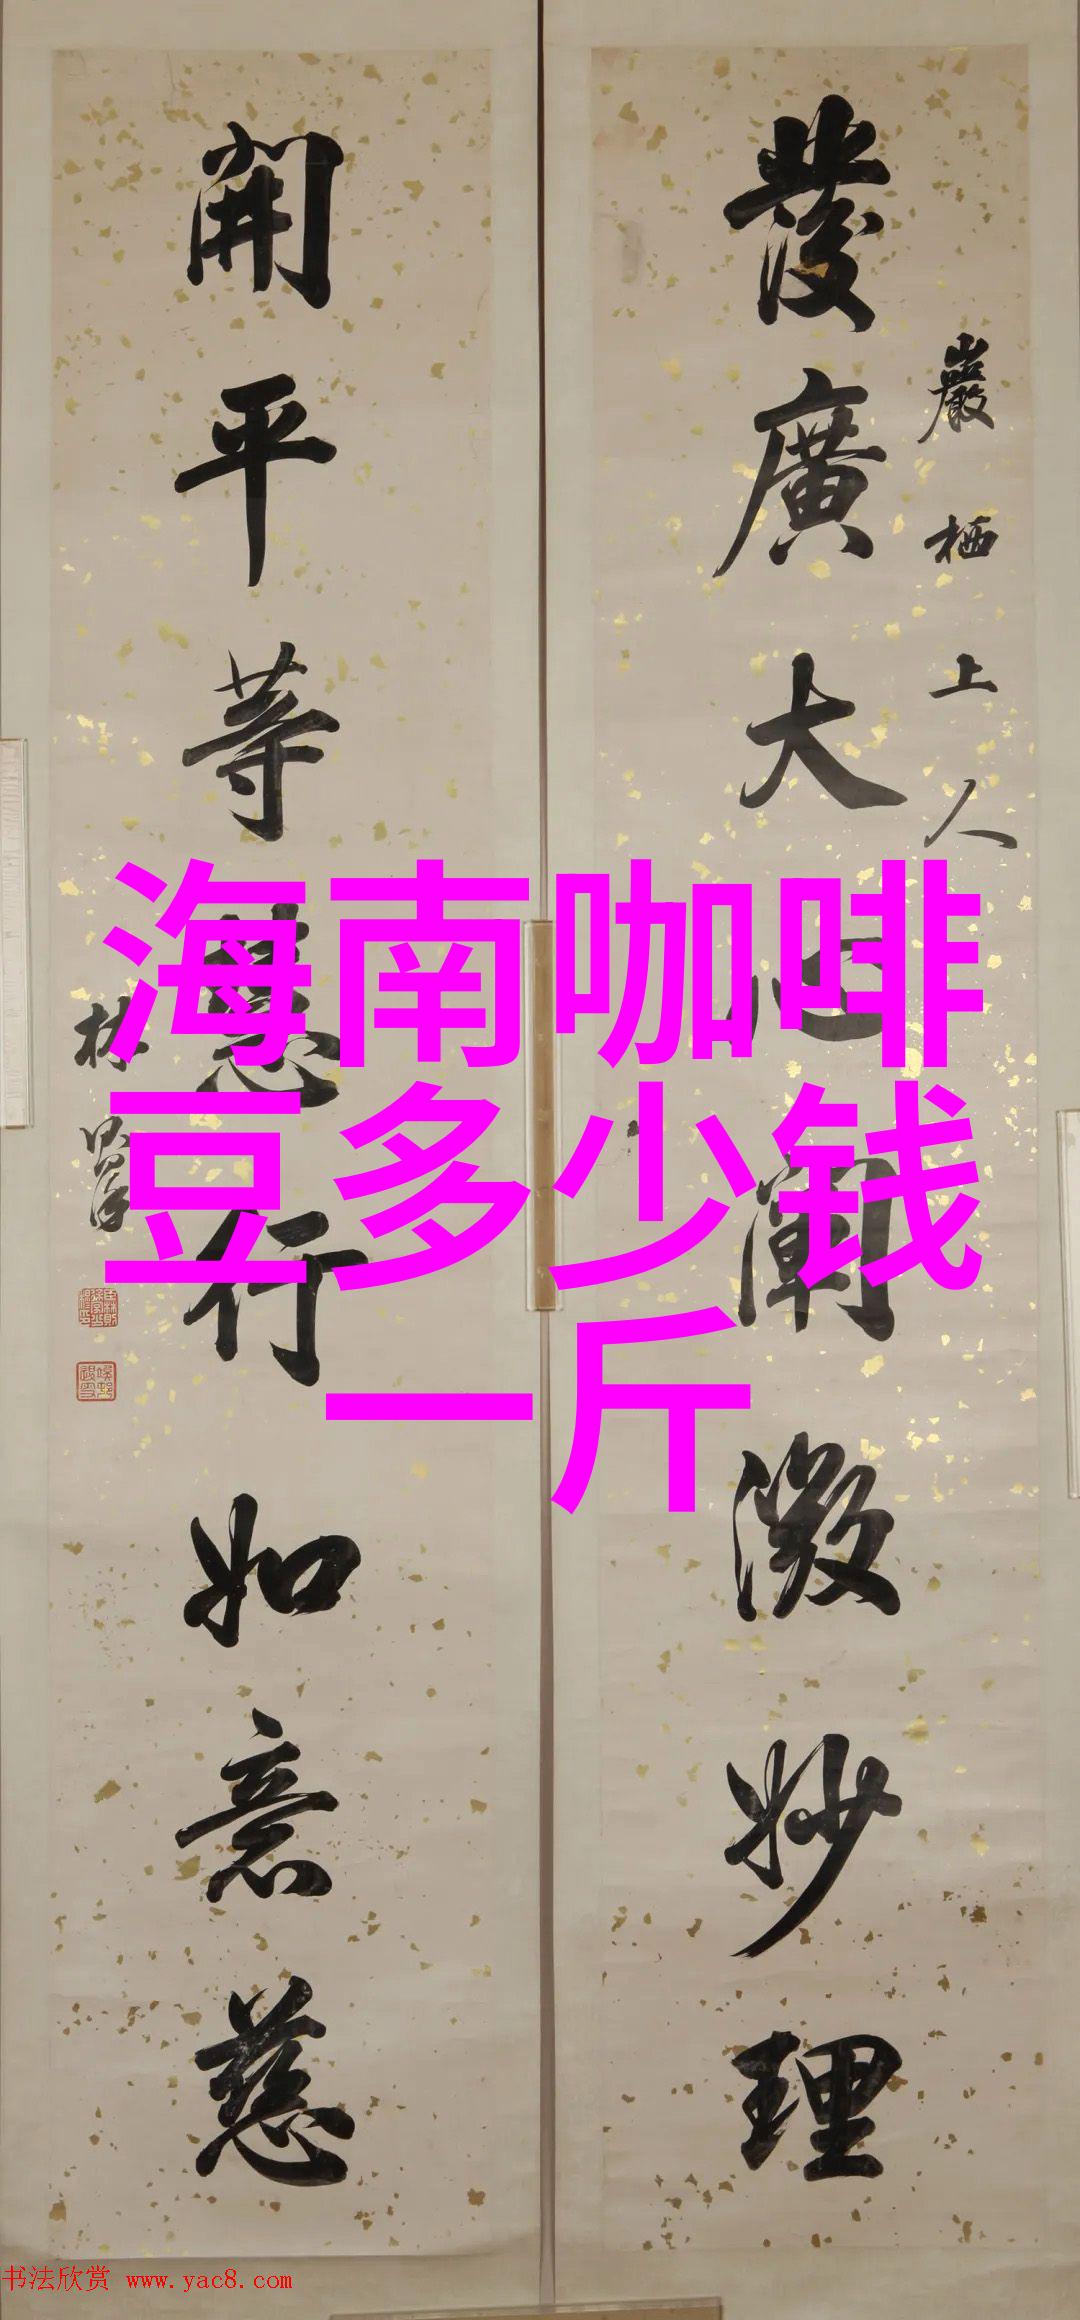 海南咖啡
豆多少钱
一斤
發廣大心闡微妙理
巖栖上人
開平等慧行如意慈
林
书法欣赏 www.yac8.com